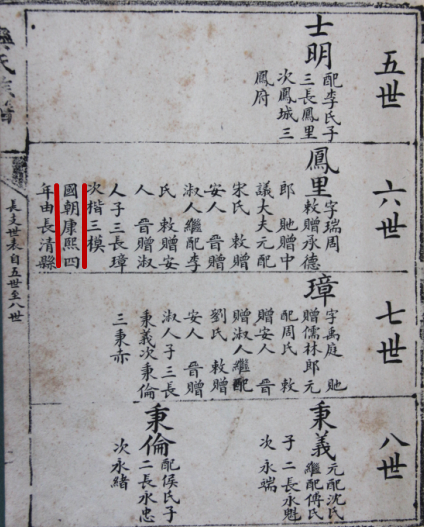 五世
士明
配李氏子
三長鳳里
次鳳城三
鳳府
六世
鳳里
字瑞周
敕贈承德
郎 貤贈中
議大夫元配
宋氏 敕贈
安人 晉贈
淑人繼配李
氏 敕贈安
人 晉贈淑
人子三長璋
次楷三模
國朝康熙四
年由長清縣
七世
璋
字禹庭 貤
贈儒林郎元
配周氏 敕
贈安人 晉
贈淑人繼配
劉氏 敕贈
安人 晉贈
淑人子三長
秉義次秉倫
三秉亦
八世
秉義
元配沈氏
繼配傅氏
子二長永魁
次永端
秉倫
配侯氏子
二長永忠
次永緒
氏族譜
長支世表自五世至八世